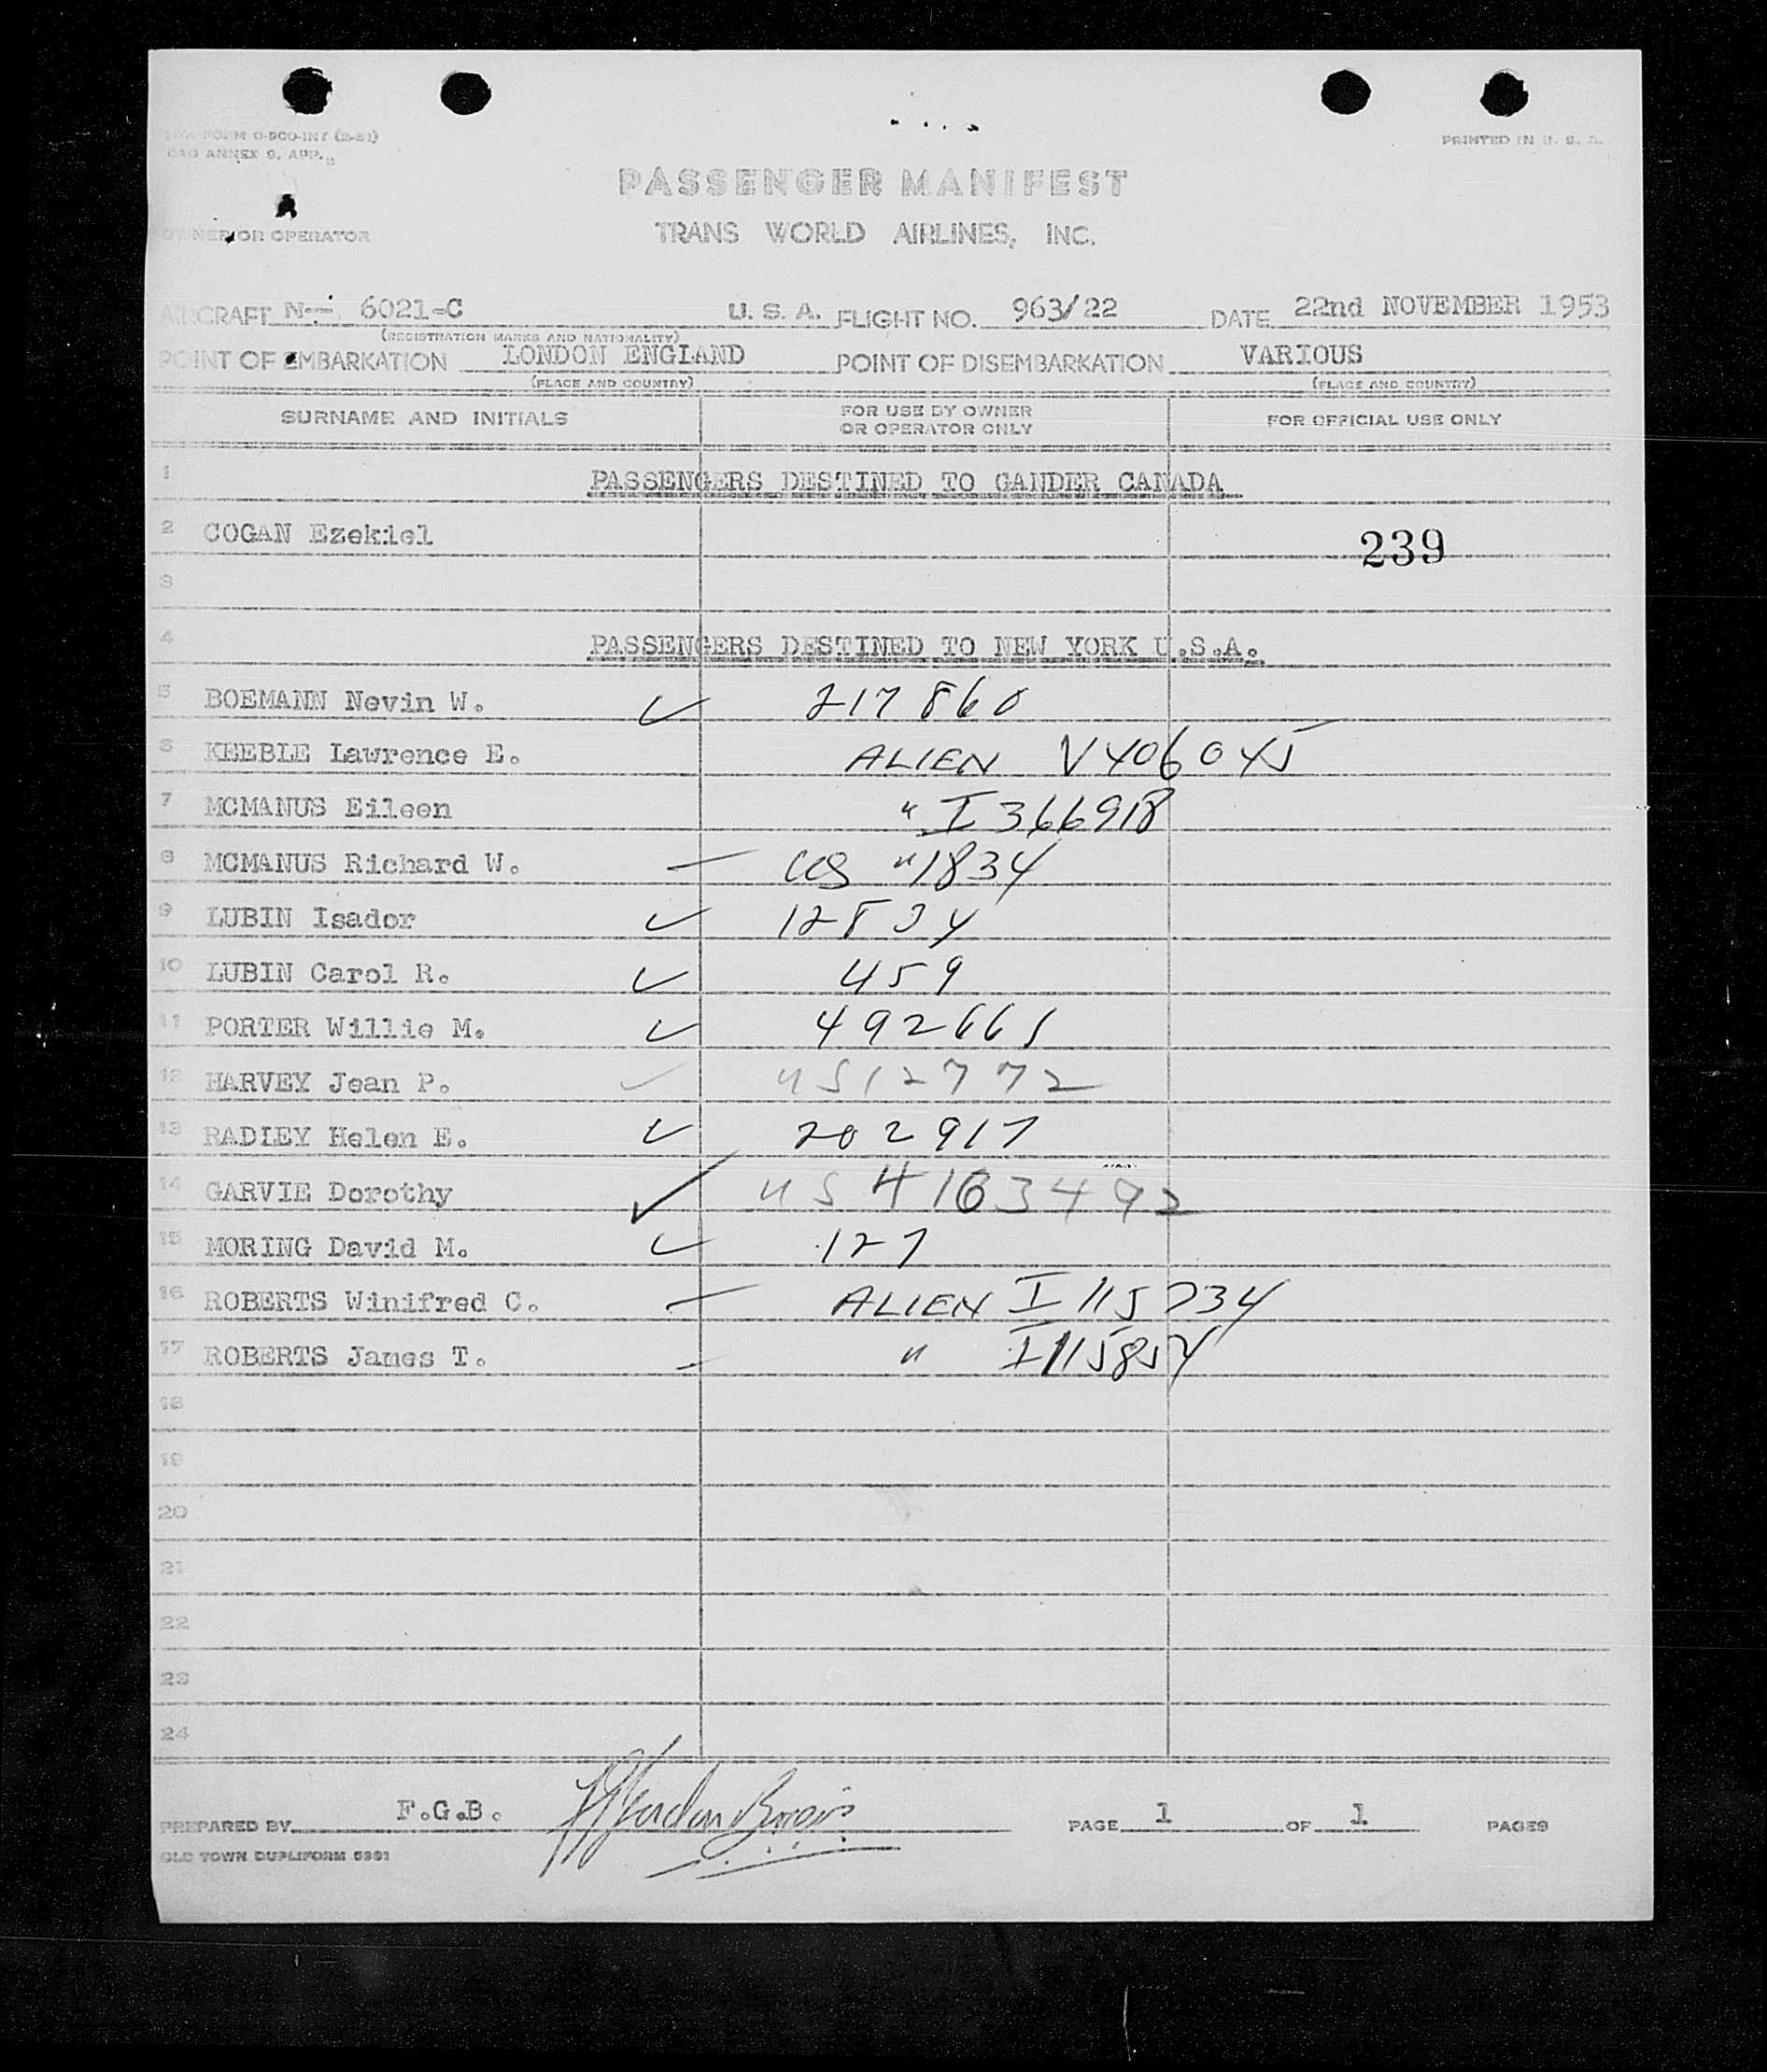 TWA FORM O-900-INT (2-51)
CAO ANNEX 9, APP.
PRINTED IN U. S. A.
PASSENGER MANIFEST
OWNER OR OPERATOR
TRANS WORLD AIRLINES, INC.
AIRCRAFT N-- 6021-C U. S. A. FLIGHT NO. 963/22 DATE 22nd NOVEMBER 1953
(REGISTRATION MARKS AND NATIONALITY)
POINT OF EMBARKATION LONDON ENGLAND POINT OF DISEMBARKATION VARIOUS
(PLACE AND COUNTRY) (PLACE AND COUNTRY)
SURNAME AND INITIALS FOR USE BY OWNER OR OPERATOR ONLY FOR OFFICIAL USE ONLY
1 PASSENGERS DESTINED TO GANDER CANADA
2 COGAN Ezekiel 239
3
4 PASSENGERS DESTINED TO NEW YORK U.S.A.
5 BOEMANN Nevin W. ✓ 217860
6 KEEBLE Lawrence E. ALIEN V406045
7 MCMANUS Eileen " I 366918
8 MCMANUS Richard W. — US "1834
9 LUBIN Isador ✓ 12834
10 LUBIN Carol R. ✓ 459
11 PORTER Willie M. ✓ 492661
12 HARVEY Jean P. ✓ US12772
13 RADLEY Helen E. ✓ 202917
14 GARVIE Dorothy ✓ US 4163492
15 MORING David M. ✓ 127
16 ROBERTS Winifred C. — ALIEN I 115734
17 ROBERTS James T. — " I115854
18
19
20
21
22
23
24
PREPARED BY F.G.B. PAGE 1 OF 1 PAGES
OLD TOWN DUPLIFORM 5391